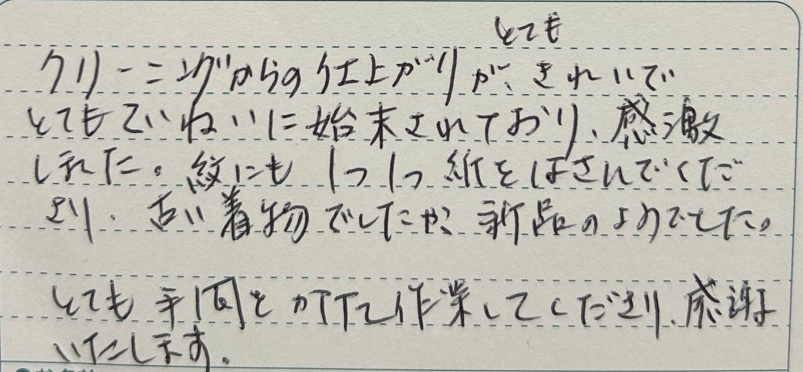 とても
クリーニングからの仕上がりが、きれいで
とてもていねいに始末されており、感激
しました。紋にも1つ1つ紙をはさんでくだ
さり、古い着物でしたが、新品のようでした。
とても手間をかけて作業してくださり、感謝
いたします。